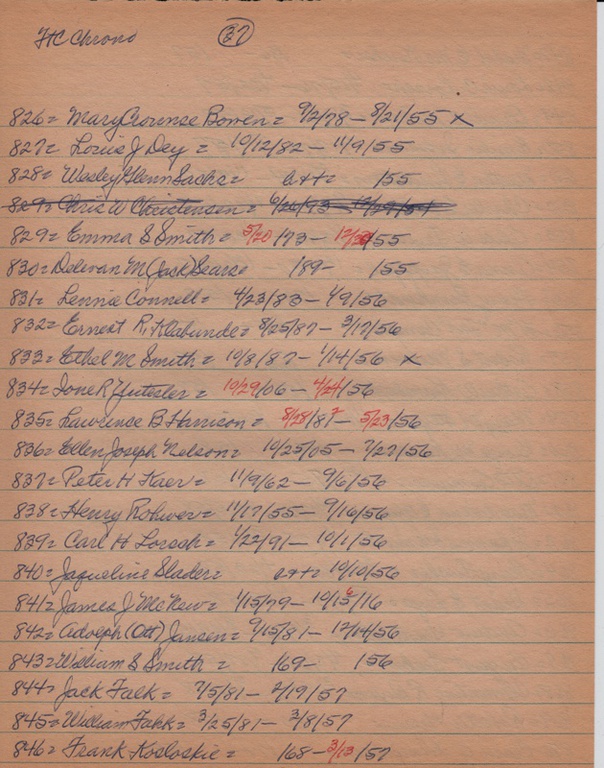 FtC Chrono 37
826= Mary Crounse Bowen = 9/2/78 - 8/21/55 x
827= Louis J Dey = 10/12/82 - 11/9/55
828= Wesley Glenn Sacks = a++= /55
829= Chris W Christensen = 6/26/93
829= Emma S Smith = 5/20/73 - /55
830= Delevan M (Jack) Sears= /89- /55
831= Lennie Connell= 4/23/83 - 1/9/56
832= Ernest R, Klabunde= 8/25/87 - 3/17/56
833= Ethel M Smith = 10/8/87 - 1/14/56 x
834= Ione R = 10/29/06 - 4/24/56
835= Lawrence B Harrison = 8/28/87 - 5/23/56
836= Ellen Joseph Nelson= 10/25/05 - 7/27/56
837= Peter H Kaer= 11/9/62 - 9/6/56
838= Henry Rohwer= 11/17/55 - 9/16/56
839= Carl H Lorsch= 1/22/91 - 10/1/56
840= Jaqueline Slader= a++= 10/10/56
841= James J McNew= 1/15/79 - 10/15/16
842= Adolph (Ott) Jansen= 9/15/81 - 12/14/56
843= William S Smith = /69- /56
844= Jack Falk = 7/5/81 - 2/19/57
845= William Fahk= 3/25/81 - 3/8/57
846= Frank Kosloskie= /68 - 3/13/57